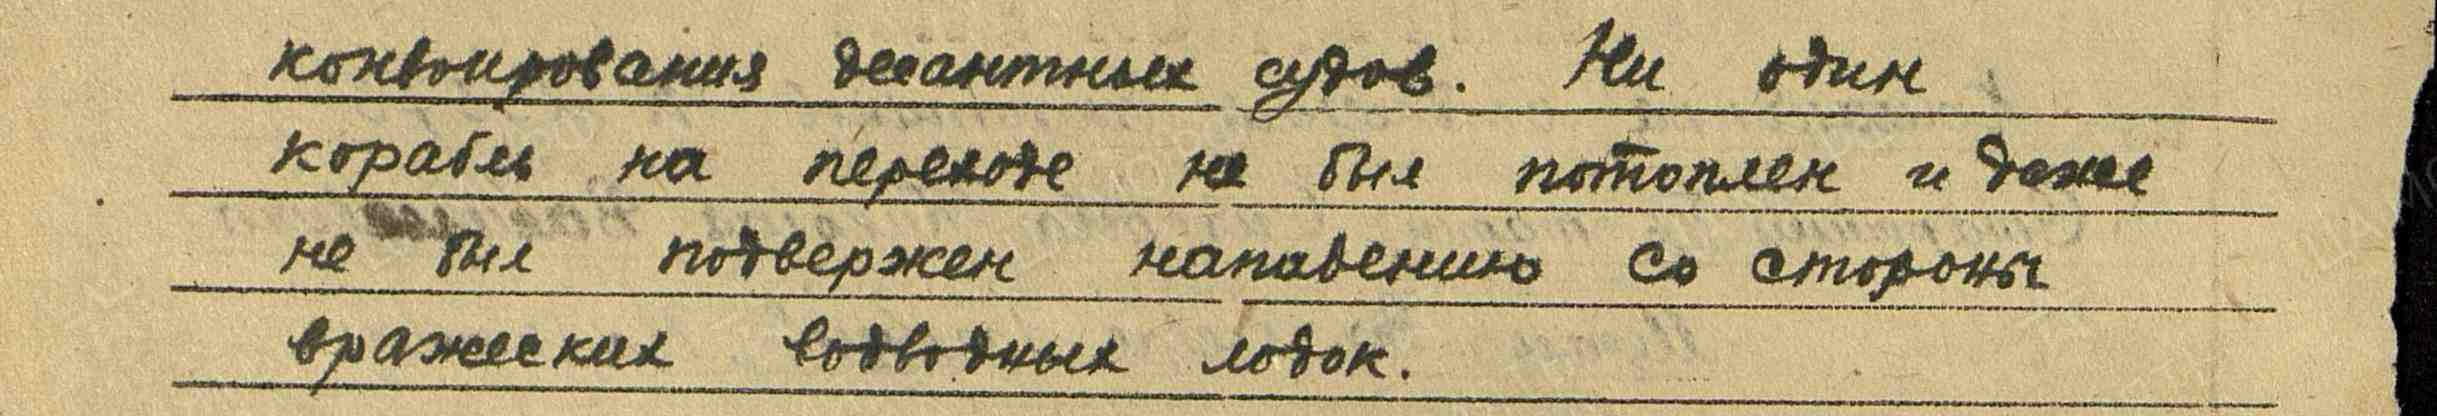 конвоирования десантных судов. Ни один
корабль на переходе не был потоплен и даже
не был подвержен нападению со стороны
вражеских водводных лодок.